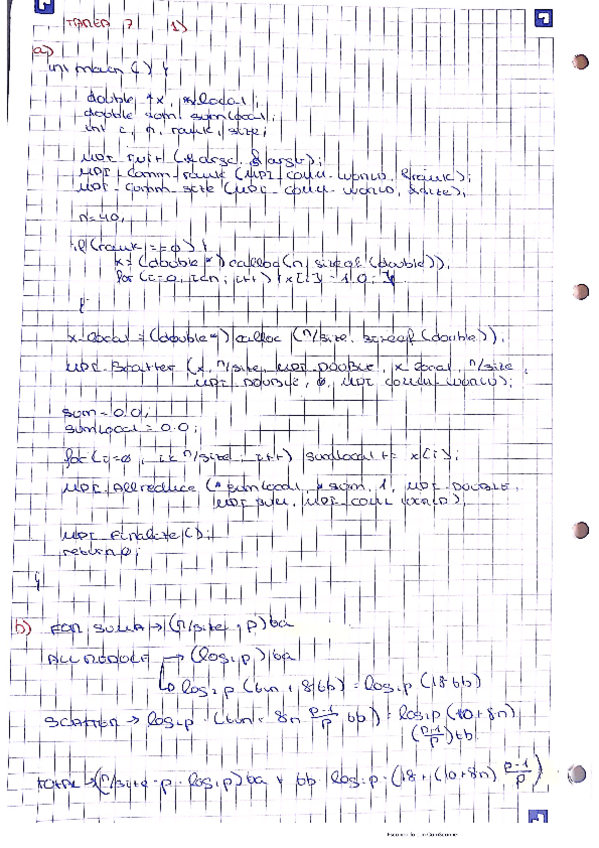 TAREA 7 1)
a)
int main () {
double *x, *xlocal;
double sum, sumlocal;
int i, n, rank, size;
MPI_Init (&argc, &argv);
MPI_Comm_rank (MPI_COMM_WORLD, &rank);
MPI_Comm_size (MPI_COMM_WORLD, &size);
n=40;
if (rank == 0) {
x = (double *) calloc (n, sizeof (double));
for (i=0, i<n; i++) x[i] = 1.0;
}
x_local = (double *) calloc (n/size, sizeof (double));
MPI_Scatter (x, n/size, MPI_DOUBLE, x_local, n/size,
MPI_DOUBLE, 0, MPI_COMM_WORLD);
sum = 0.0;
sumlocal = 0.0;
for (i=0, i< n/size; i++) sumlocal += x[i];
MPI_Allreduce ( sumlocal, sum, 1, MPI_DOUBLE,
MPI_SUM, MPI_COMM_WORLD);
MPI_Finalize ();
return 0;
}
b) FOR SUMA → (n/size, p) ba
ALLREDUCE → (log₂p) ba
↳ log₂p = log₂p (18 bb)
SCATTER → log₂p (8n p-1/p bb) = log₂p (10+8n)
(p-1/p) bb
TOTAL → (n/size p log₂p) ba + bb log₂p (18 + (10+8n) p-1/p)